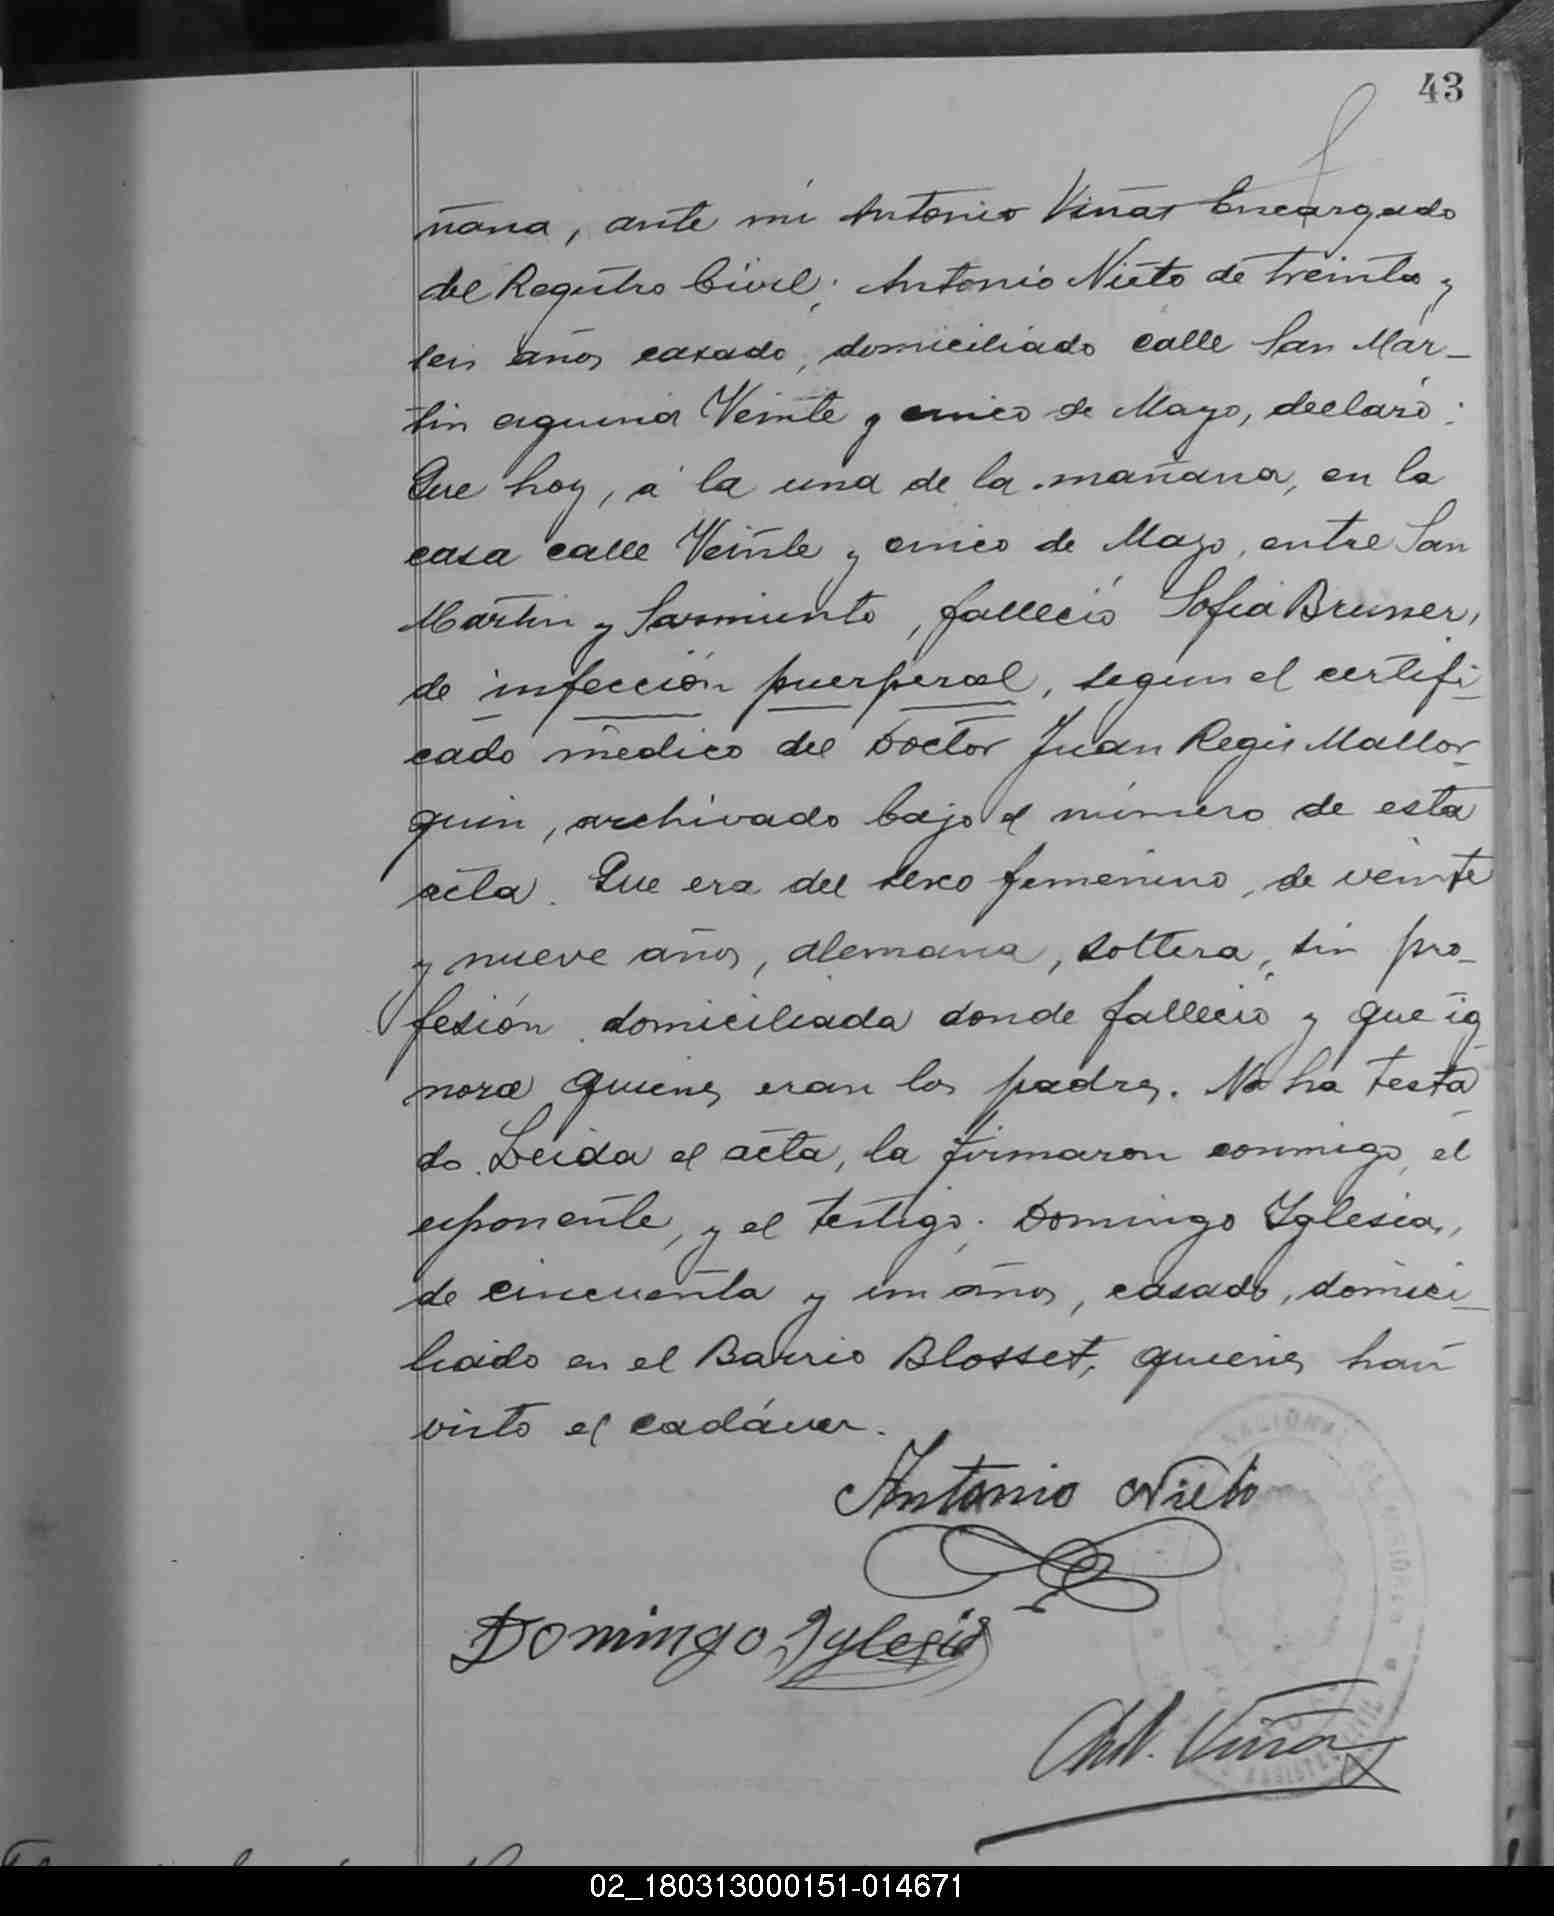 43
ñana, ante mí Antonio Viñas Encargado
del Registro Civil; Antonio Nieto de treinta y
seis años casado, domiciliado calle San Mar-
tin esquina Veinte y cinco de Mayo, declaró:
Que hoy, á la una de la mañana, en la
casa calle Veinte y cinco de Mayo, entre San
Martin y Sarmiento, falleció Sofia Brunner,
de infección puerperal, segun el certifi-
cado médico del Doctor Juan Regis Mallor-
quin, archivado bajo el número de esta
acta. Que era del sexo femenino, de veinte
y nueve años, alemana, soltera, sin pro-
fesión domiciliada donde falleció y que ig-
nora quienes eran los padres. No ha testa-
do. Leida el acta, la firmaron conmigo, el
exponente, y el testigo; Domingo Iglesia,
de cincuenta y un años, casado, domici-
liado en el Barrio Blosset, quienes han
visto el cadáver.
Antonio Nieto
Domingo Iglesia
Ant. Viñas
02_180313000151-014671